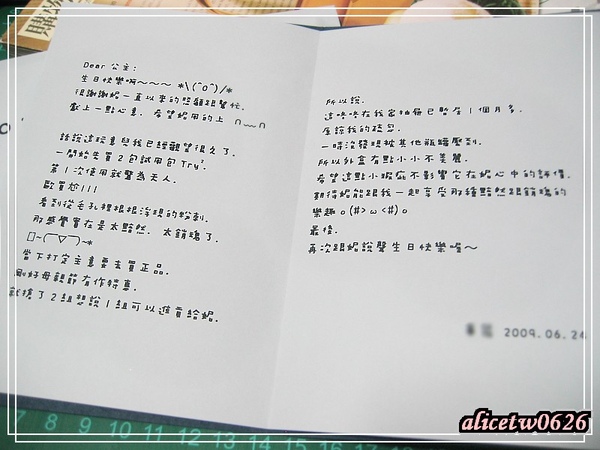 Dear 公主:
生日快樂啊~~~ *\(^o^)/*
很謝謝妮一直以來的照顧跟幫忙.
獻上一點心意. 希望妮用的上 ∩__∩
話說這玩意兒我已經觀望很久了.
一開始先買2包試用包Try².
第1次使用就驚為天人.
歐買尬!!!
看到從毛孔裡根根浮現的粉刺.
那感覺實在是太黯然. 太銷魂了.
~(￣▽￣)~*
當下打定主意要去買正品.
剛好母親節有作特惠.
就擠了2組想說1組可以進貢給妮.
所以說.
這咚咚在我家抽屜已暫居1個月多.
度諒我的疏忽.
一時沒發現被其他瓶罐壓到.
所以外盒有點小小不美麗.
希望這點小瑕疵不影響它在妮心中的評價.
期待妮能跟我一起享受那種黯然跟銷魂的
樂趣 o(#>ω<#)o
最後.
再次跟妮說聲生日快樂喔~
2009.06.24
7 8 9 10 11 12 13 14 15
alicetw0626